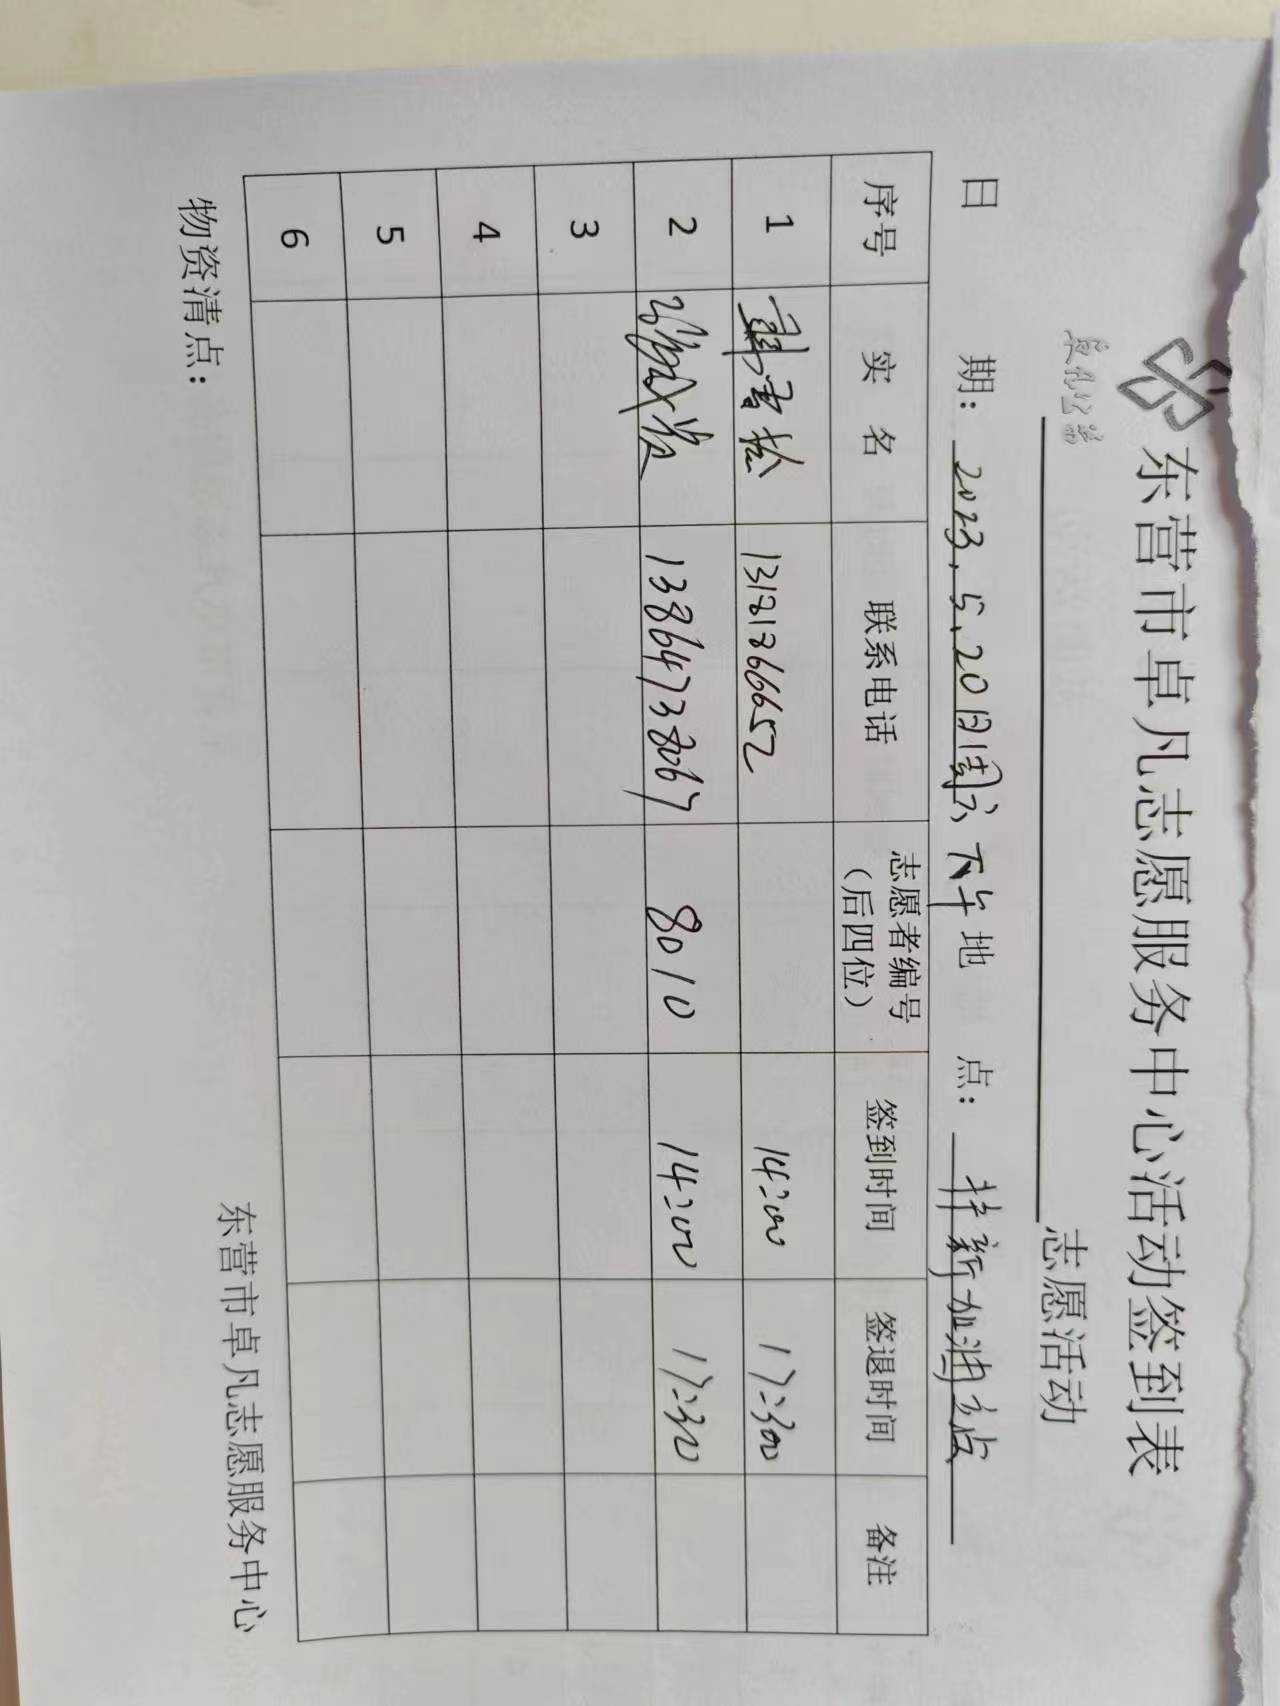 卓凡公益
东营市卓凡志愿服务中心活动签到表
志愿活动
日 期: 2023.5.20日(周六)下午 地 点: 特新加油站
序号 实 名 联系电话 志愿者编号(后四位) 签到时间 签退时间 备注
1 13181366652 14:00 17:300
2 13864738067 8010 14:00 17:30
3
4
5
6
物资清点:
东营市卓凡志愿服务中心